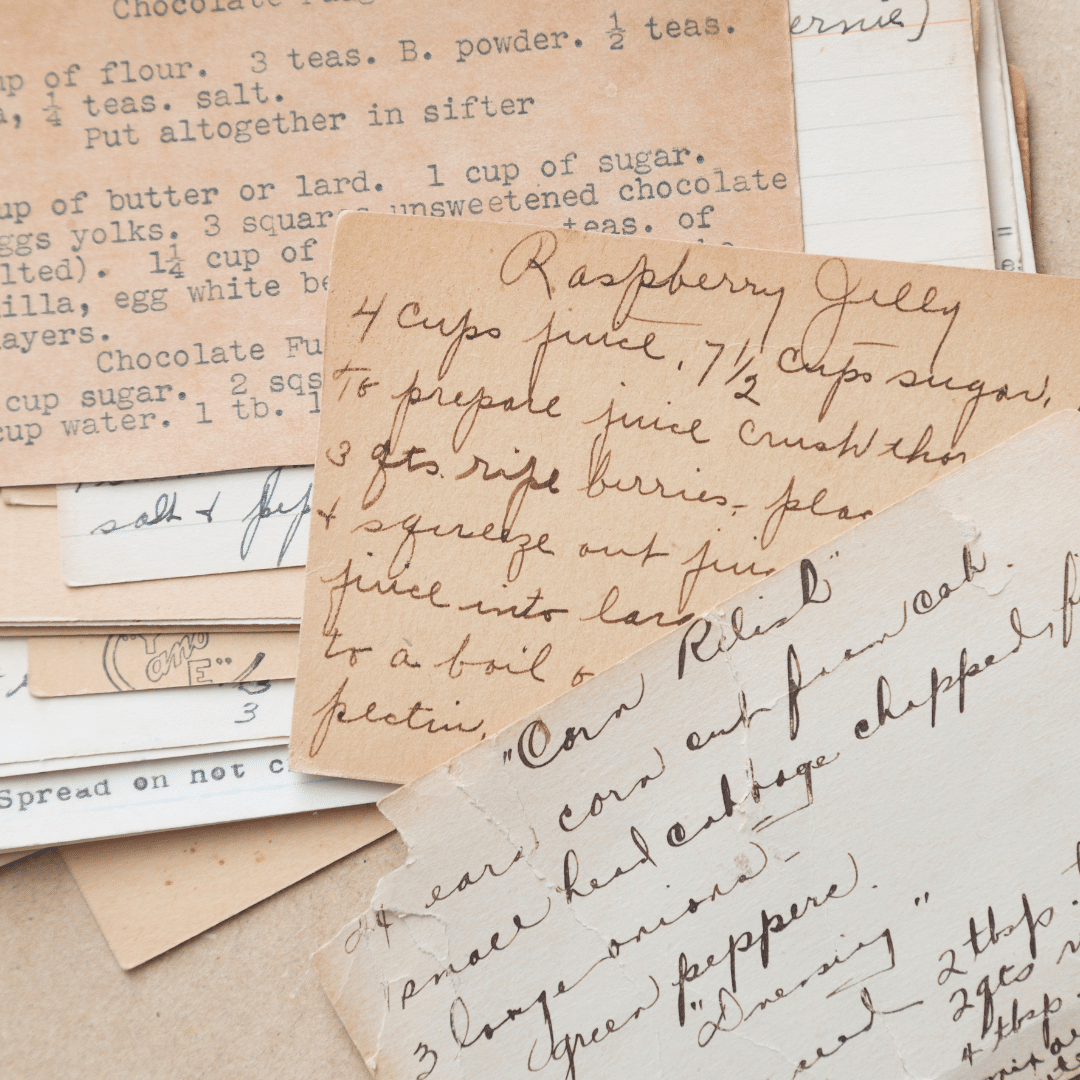 Chocolate Fudg
up of flour. 3 teas. B. powder. ½ teas.
a, ¼ teas. salt.
Put altogether in sifter
up of butter or lard. 1 cup of sugar.
ggs yolks. 3 squares unsweetened chocolate
lted). 1¼ cup of teas. of
illa, egg white be
ayers.
Chocolate Fu
cup sugar. 2 sqs
cup water. 1 tb.
ernie)
salt & pep
"Y
and
E"
3
Spread on not c
Raspberry Jelly
4 cups juice, 7½ cups sugar,
To prepare juice crush thor
3 qts. ripe berries, plac
+ squeeze out juic
juice into larg
to a boil
pectin.
"Corn Relish"
24 ears corn cut from cob.
small head cabbage chopped fi
3 large onions -
green peppers.
"Dressing"
2 tbsp.
2 qts
4 tbsp.